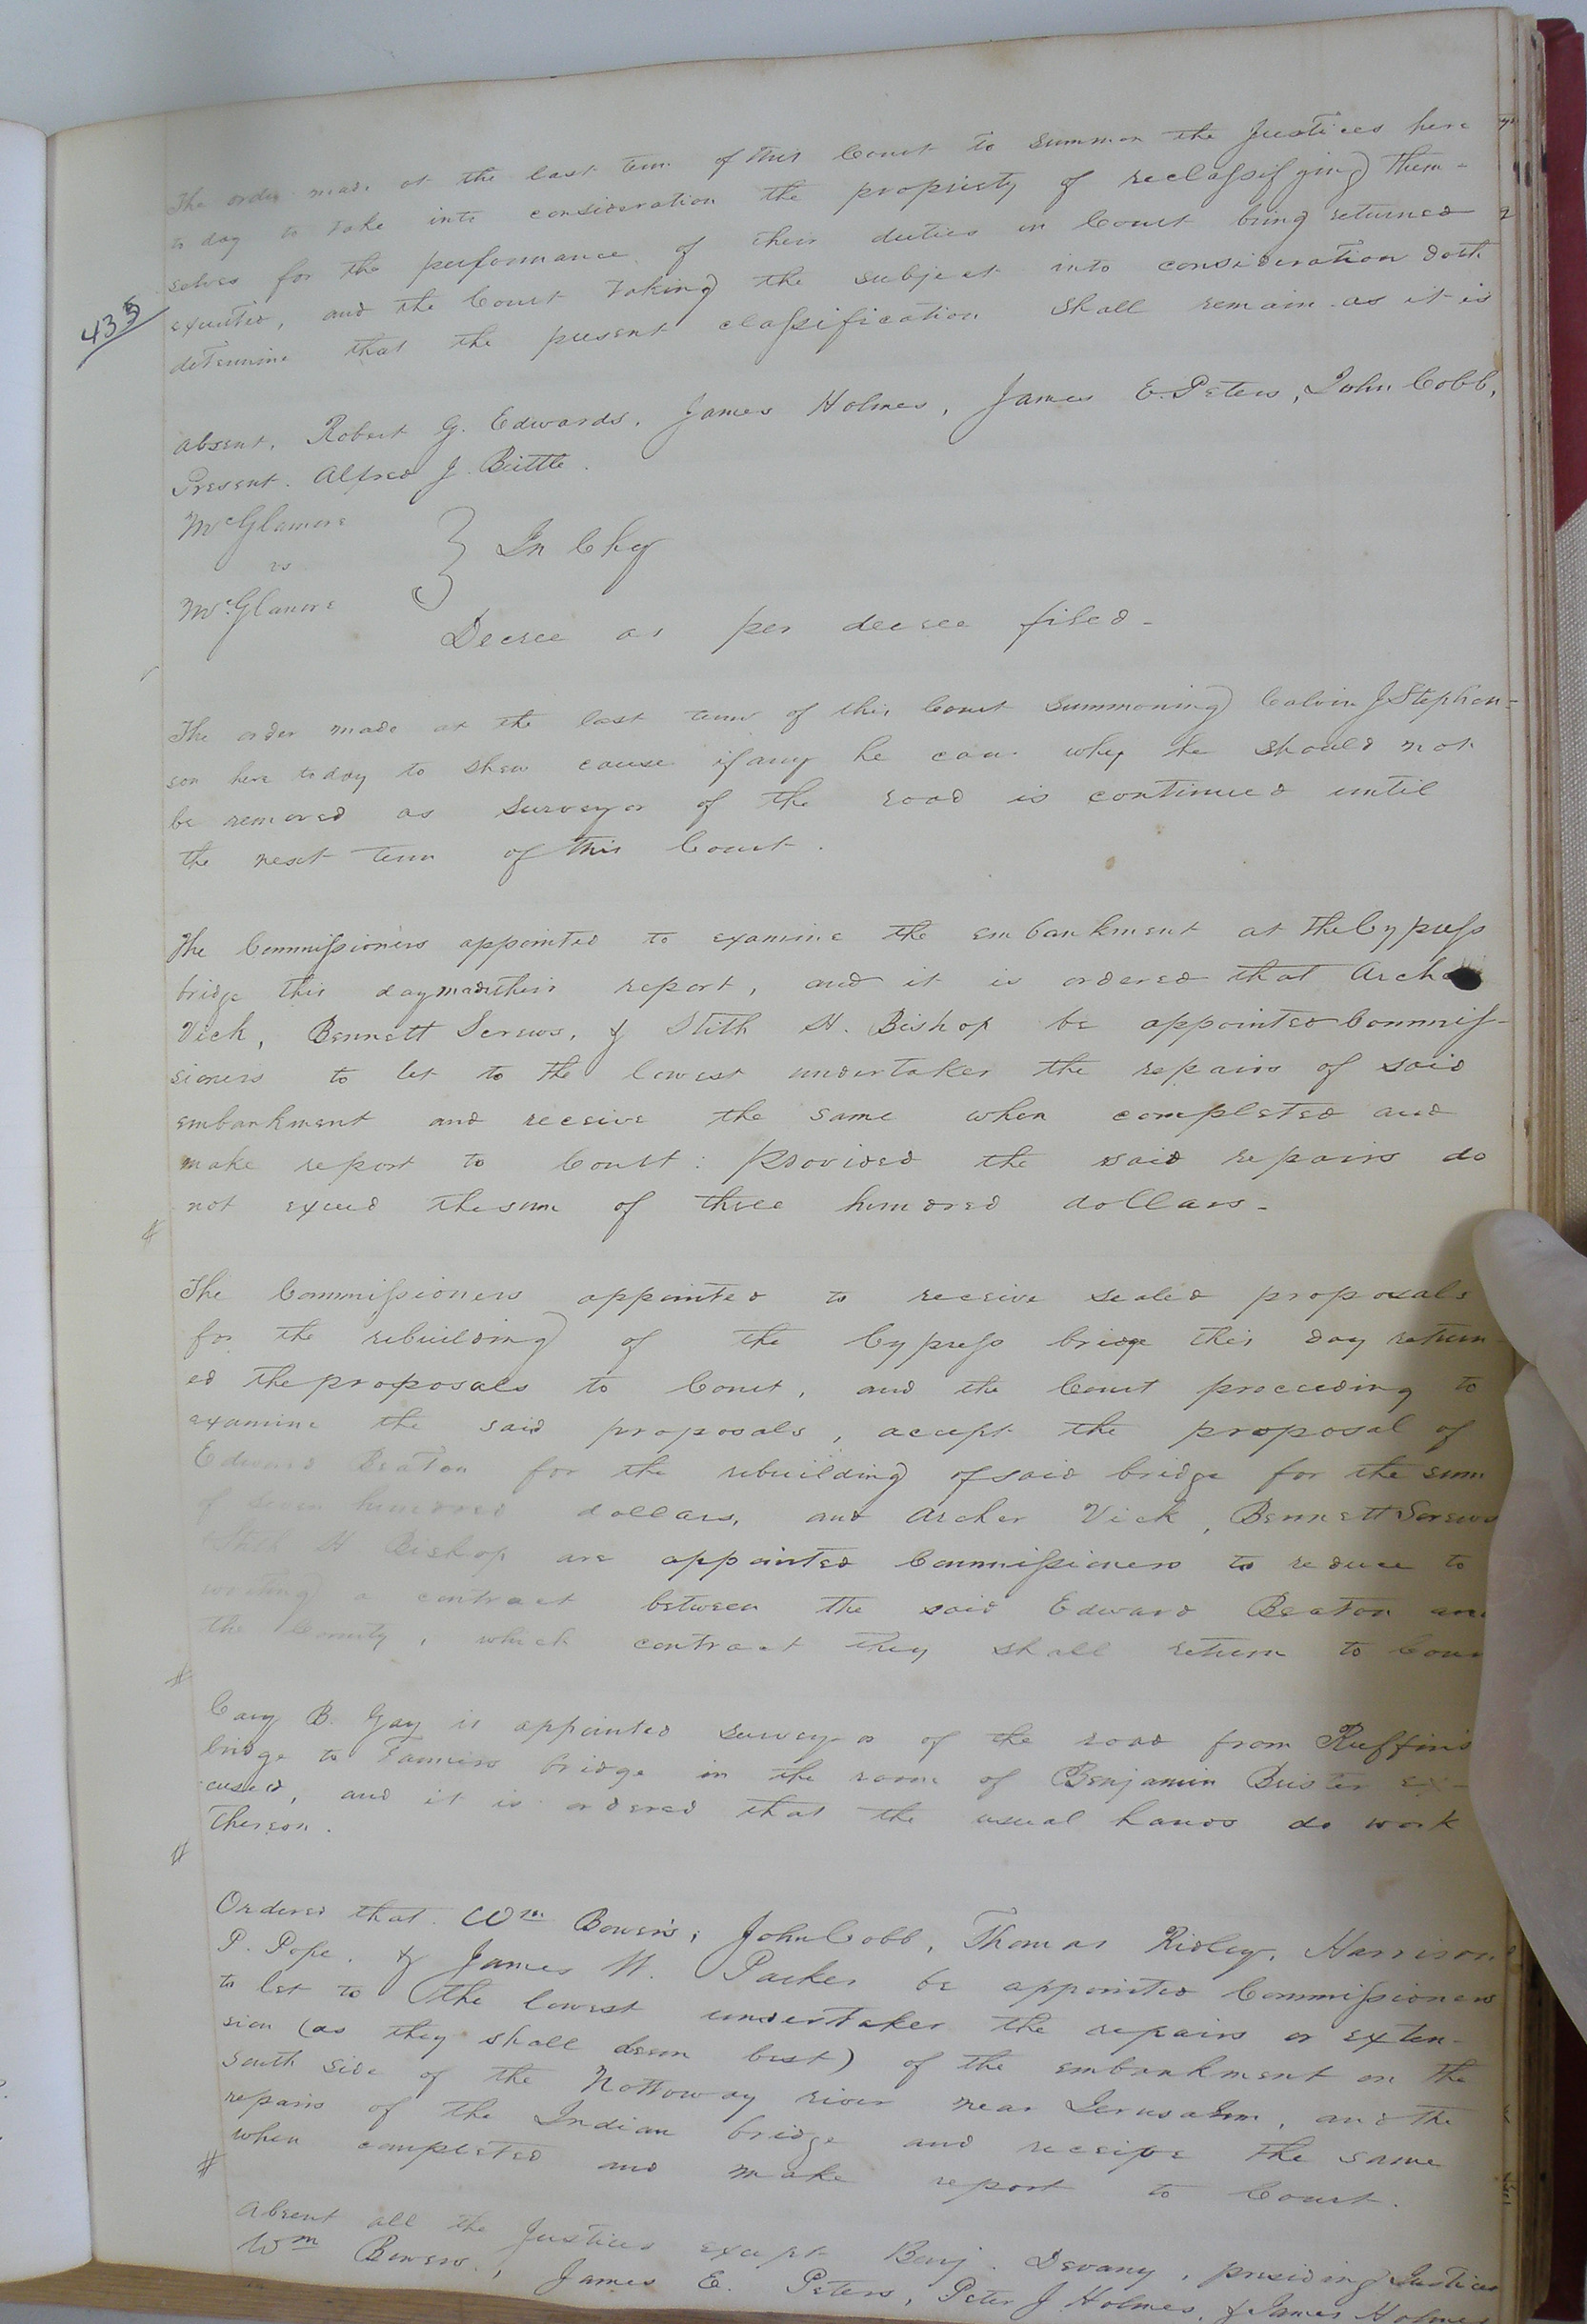 The order made at the last term of this Court to summon the Justices here
to day to take into consideration the propriety of reclassifying them-
selves for the performance of their duties in Court being returned
executed, and the Court taking the subject into consideration doth
determine that the present classification shall remain as it is
435
Absent, Robert G. Edwards, James Holmes, James E. Peters, John Cobb,
Present. Alfred J. Brittle.
McGlamore
vs } In Chy
McGlamore
Decree as per decree filed-
The order made at the last term of this Court summoning Calvin J Stephen-
son here to day to shew cause if any he can why he should not
be removed as surveyor of the road is continued until
the next term of this Court.
The Commissioners appointed to examine the embankment at the Cypress
bridge this day made their report, and it is ordered that Archer
Vick, Bennett Screws, & Stith H. Bishop be appointed Commis-
sioners to let to the lowest undertaker the repairs of said
embankment and receive the same when completed and
make report to Court: Provided the said repairs do
not exceed the sum of three hundred dollars-
#
The Commissioners appointed to receive sealed proposals
for the rebuilding of the Cypress bridge this day return-
ed the proposals to Court, and the Court proceeding to
examine the said proposals, accept the proposal of
Edward Beaton for the rebuilding of said bridge for the sum
of seven hundred dollars, and Archer Vick, Bennett Screws
Stith H Bishop are appointed Commissioners to reduce to
writing a contract between the said Edward Beaton and
the County, which contract they shall return to Cour
#
Cary B. Gay is appointed surveyor of the road from Ruffin's
bridge to Farmers bridge in the room of Benjamin Brister ex-
cused, and it is ordered that the usual hands do work
thereon.
#
Ordered that Wm Bowers, John Cobb, Thomas Ridley, Harrison
P. Pope, & James W. Parker be appointed Commissioners
to let to the lowest undertaker the repairs or exten-
sion (as they shall deem best) of the embankment on the
south side of the Nottoway river near Jerusalem, and the
repairs of the Indian bridge and receive the same
when completed and make report to Court.
#
Absent all the Justices except Benj. Devany, presiding Justice
Wm Bowers, James E. Peters, Peter J Holmes, & James Holmes